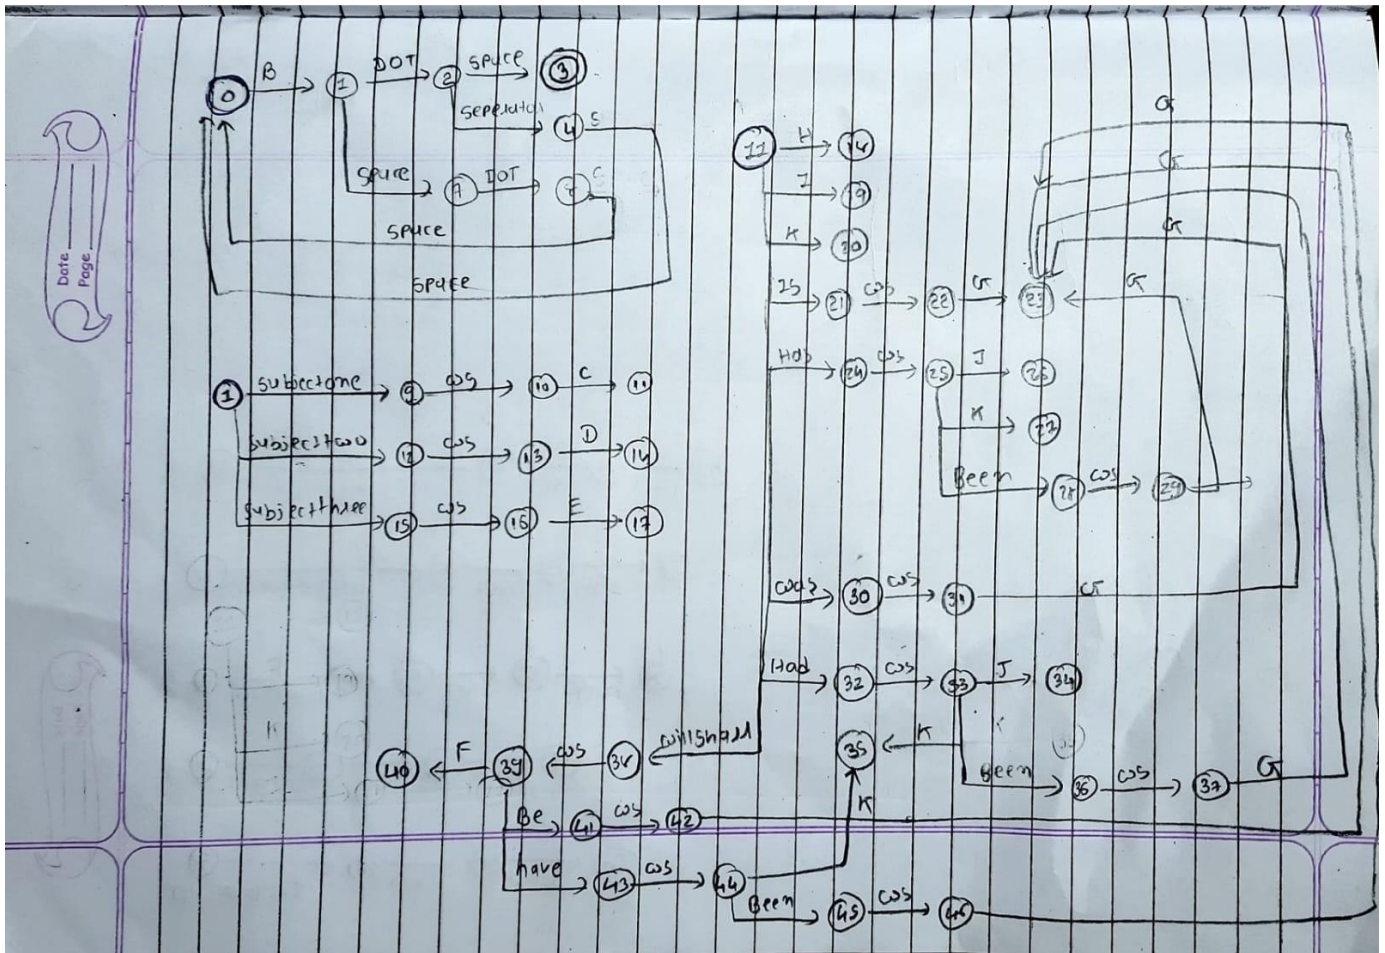 0 B 1 DOT 2 space 3
seperator 4 S
space 7 DOT
space
space
Date
Page
1 subjectone 9 ws 10 C 11
subjecttwo 12 ws 13 D 14
subjectthree 15 ws 16 E 17
11 H
I 19
K 20
IS 21 ws 22 G 23 G
Has 24 ws 25 J 26
K 27
Been 28 ws 29
was 30 ws 31 G
Had 32 ws 33 J 34
35 K
Been 36 ws 37 G
40 F 39 ws willshall
K
Be 41 ws 42
have 43 ws 44
Been 45 ws 46
G
G
G